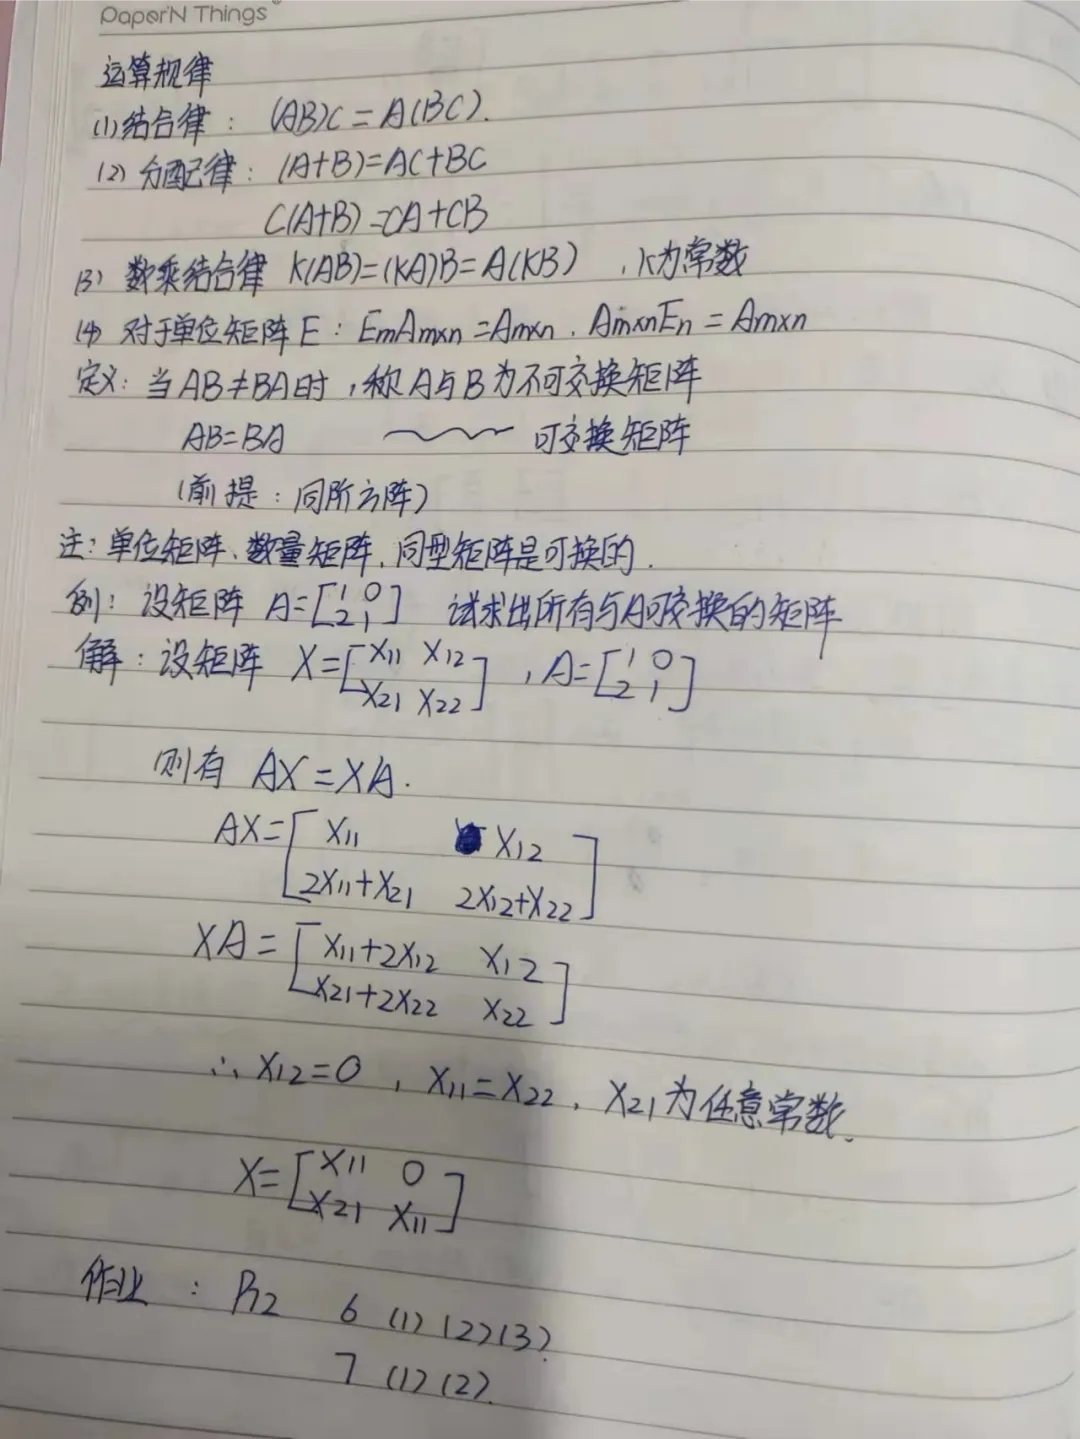 PaperN Things
运算规律
(1)结合律：(AB)C=A(BC).
(2)分配律：(A+B)=AC+BC
C(A+B)=CA+CB
(3)数乘结合律 K(AB)=(KA)B=A(KB)，K为常数
(4)对于单位矩阵E：EmAm×n=Am×n．Am×nEn=Am×n
定义：当AB≠BA时，称A与B为不可交换矩阵
AB=BA 〰 可交换矩阵
(前提：同阶方阵)
注：单位矩阵、数量矩阵、同型矩阵是可换的.
例：设矩阵 A=[1 0
2 1] 试求出所有与A可交换的矩阵
解：设矩阵 X=[X11 X12
X21 X22]，A=[1 0
2 1]
则有 AX=XA.
AX=[X11 X12
2X11+X21 2X12+X22]
XA=[X11+2X12 X12
X21+2X22 X22]
∴ X12=0，X11=X22．X21为任意常数.
X=[X11 0
X21 X11]
作业：P12 6 (1)(2)(3)
7 (1)(2)